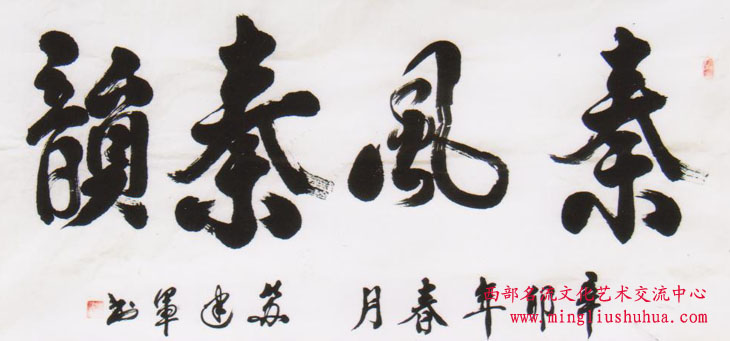 秦風秦韻
辛卯年春月 苏建軍书
西部名流文化艺术交流中心
www.mingjiushuhua.com